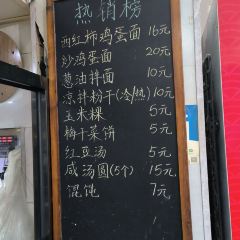 热销榜
西红柿鸡蛋面 16元
炒鸡蛋面 20元
葱油拌面 10元
凉拌粉干(冷/热) 10元
玉米粿 5元
梅干菜饼 5元
红豆汤 5元
咸汤圆(5个) 15元
馄饨 7元